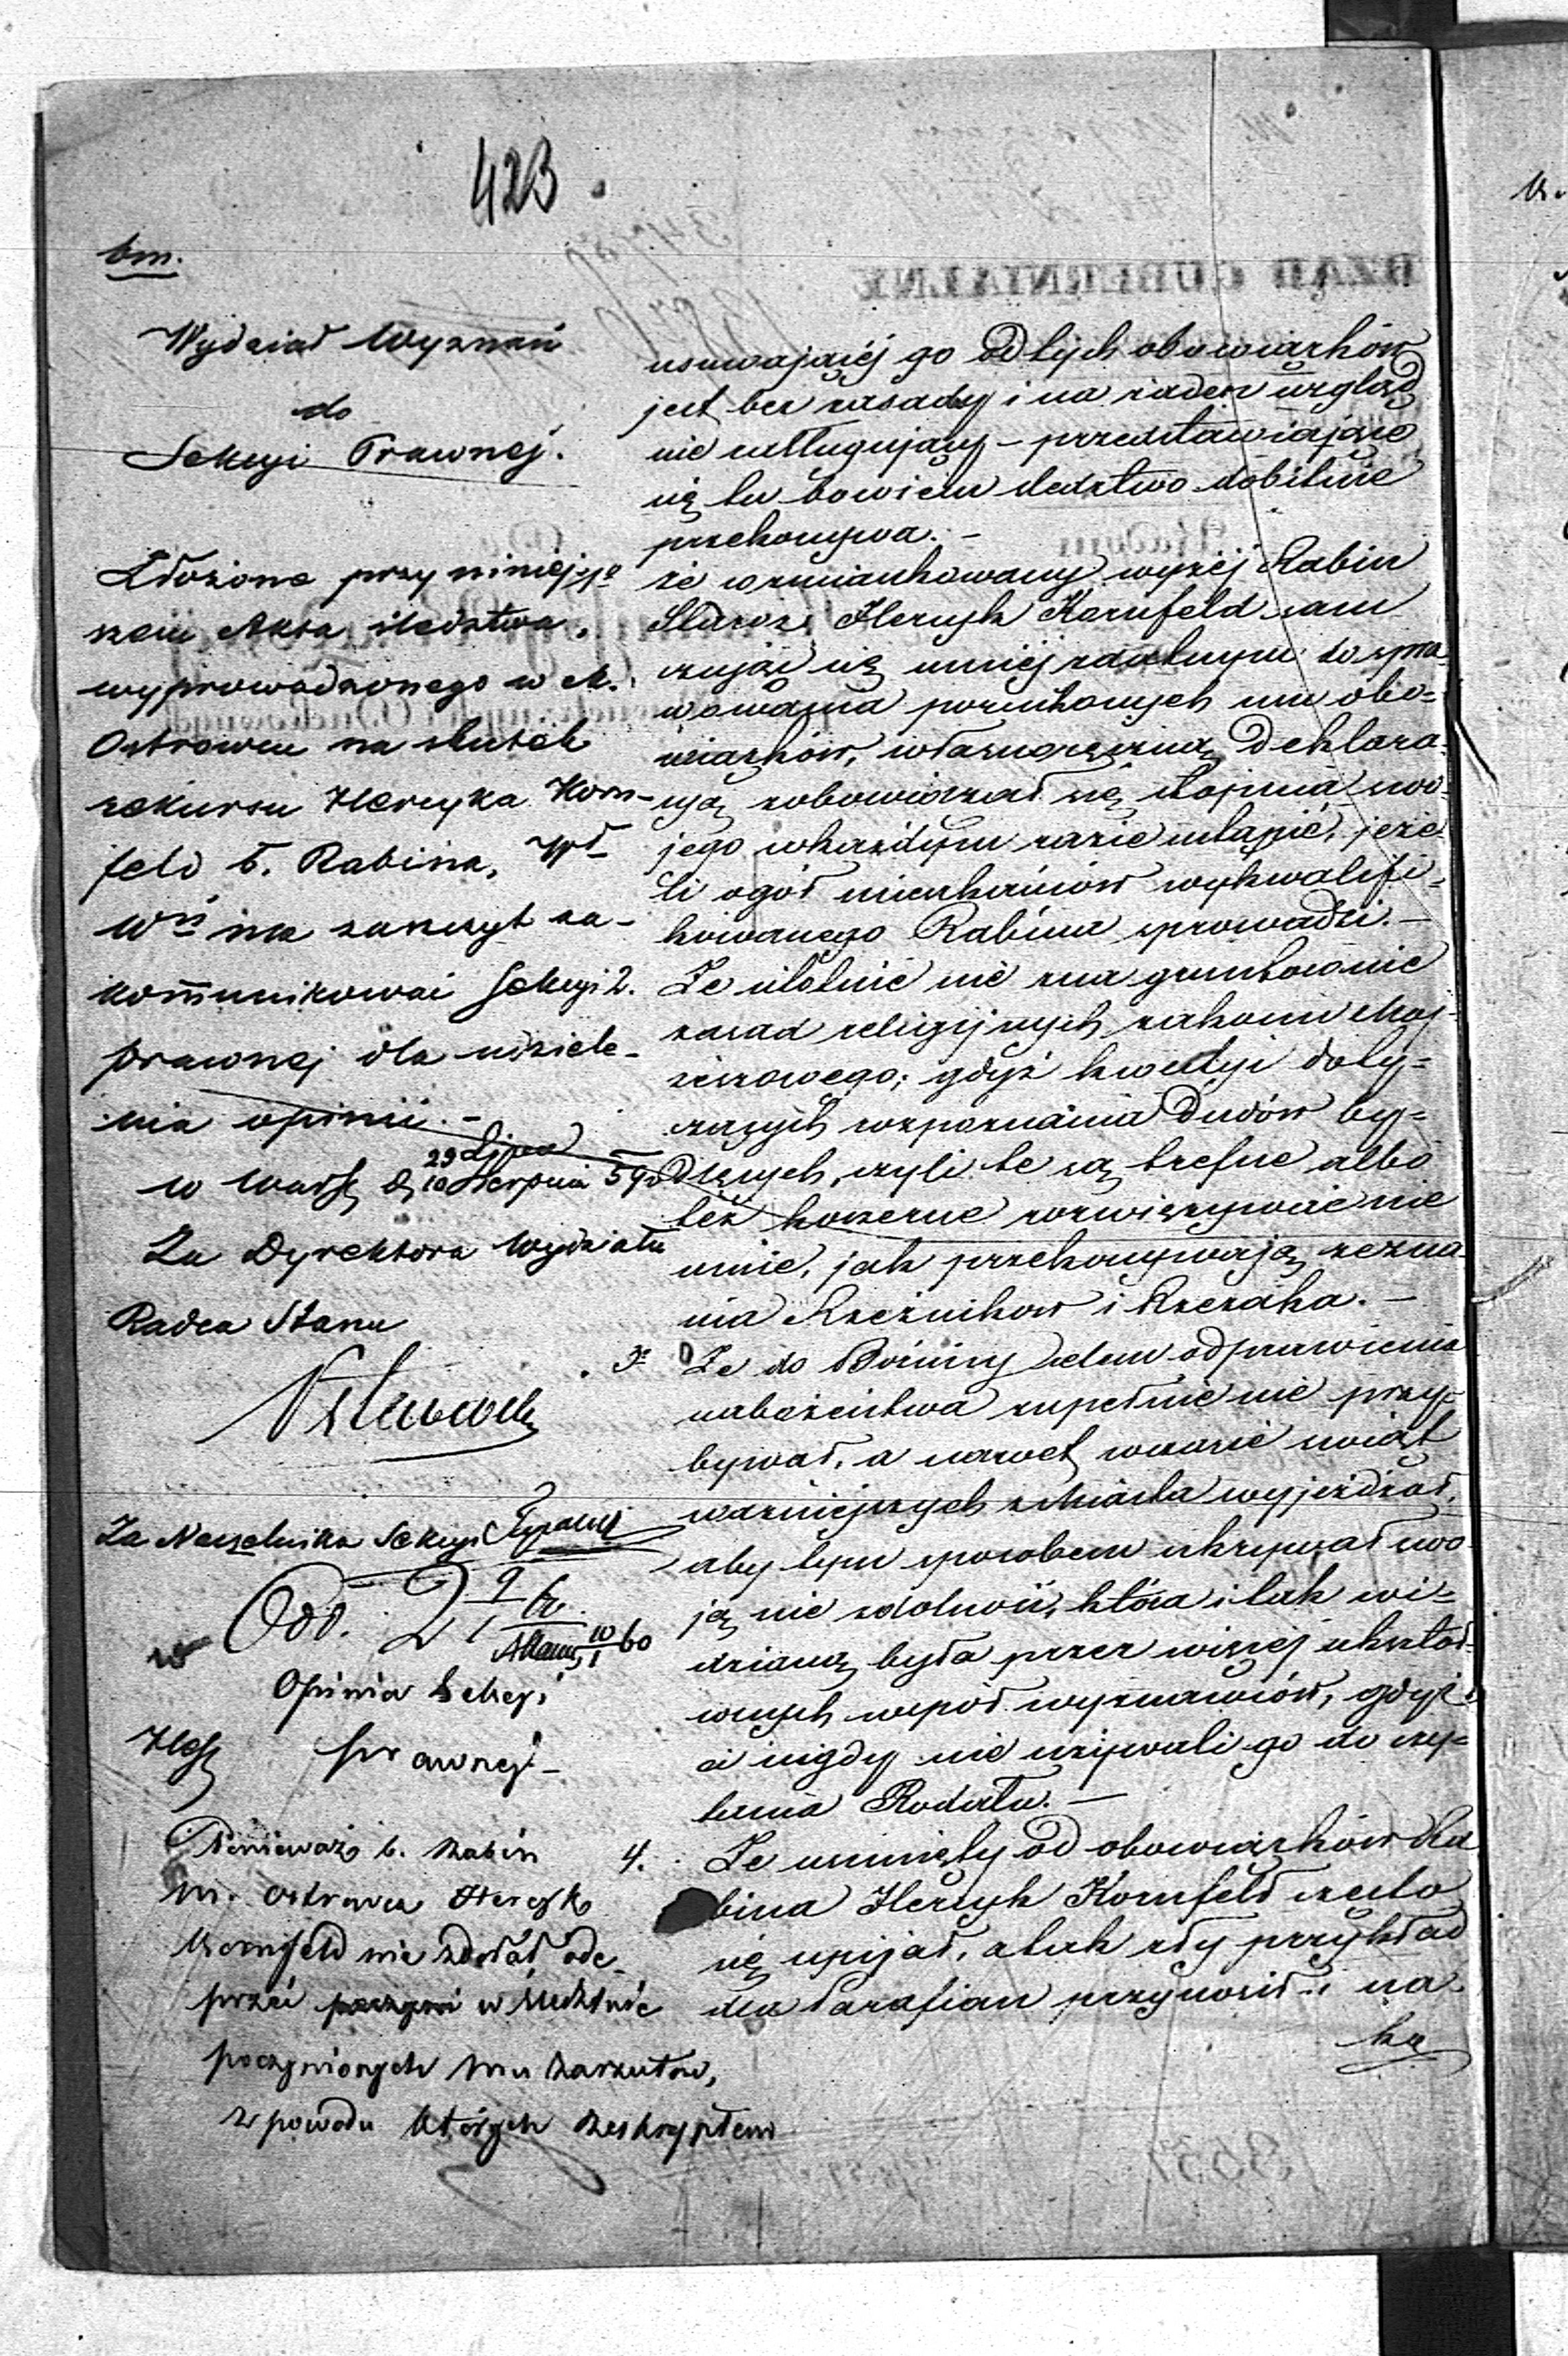 423
bm.
Wydział Wyznań
do
Sekcyi Prawnej.
Złożone przy niniej-
szem Akta śledztwa,
wyprowadzonego w M.
Ostrowcu na skutek
rekursu Hercyka Korn-
feld b. Rabina, Wł
Wń ma zaszczyt za-
kommunikować Sekcyi 2.
prawnej dla udziele-
nia opinii.-
29 Lipca
w Warsz d 10 Sierpnia 59
Za Dyrektora Wydziału
Radca Stanu
Za Naczelnika Sekcyi
Odd. 2
10/1 60
Opinia Sekcyi
prawnej-
Ponieważ b. Rabin
m. Ostrowca Hercyk
Kornfeld nie zdołał ode-
przeć w śledztwie
poczynionych mu zarzutów,
z powodu których Reskryptem
RZĄD GUBERNIALNY
usuwającej go od tych obowiązków
jest bez zasady i na żaden wzgląd
nie zasługujący – przedstawiające
się tu bowiem śledztwo dobitnie
przekonywa.-
że wzmiankowany wyżej Rabin
Starozk: Hercyk Kornfeld sam
czując się mniej zdatnym do spra-
wowania poruczonych mu obo-
wiązków, własnoręczną Deklara-
cyą zobowiązał się stopnia swo-
jego w każdym razie ustąpić, jeże-
li ogół mieszkańców wykwalifi-
kowanego Rabina sprowadzi.-
Że istotnie nie zna gruntownie
zasad religijnych zakonu Moj-
żeszowego; gdyż kwestyi doty-
czących rozpoznania Dudów by-
dlęcych, czyli te są trefne albo
też koszerne rozwiązywać nie
umie, jak przekonywają zezna-
nia Rzeźników i Rzezaka.-
3º Że do Bóżnicy celem odprawienia
nabożeństwa zupełnie nie przy-
bywał, a nawet w czasie świąt
ważniejszych z Miasta wyjeżdżał,
aby tym sposobem ukrywał swo-
ją nie zdolność, która i tak wi-
dzianą była przez więcej ukształ-
conych współ wyznawców, gdyż
ci nigdy nie wzywali go do czy-
tania Rodału.-
4. Że usunięty od obowiązków Ra
bina Hercyk Kornfeld często
się upijał, a tak zły przykład
dla Parafian przynosił i na-
ka